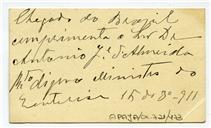 Chegado do Brazil
cumprimenta o Snr Dr
Antonio Jé d'Almeida
Mto digno Ministro do
Interior 15 do 3º-911